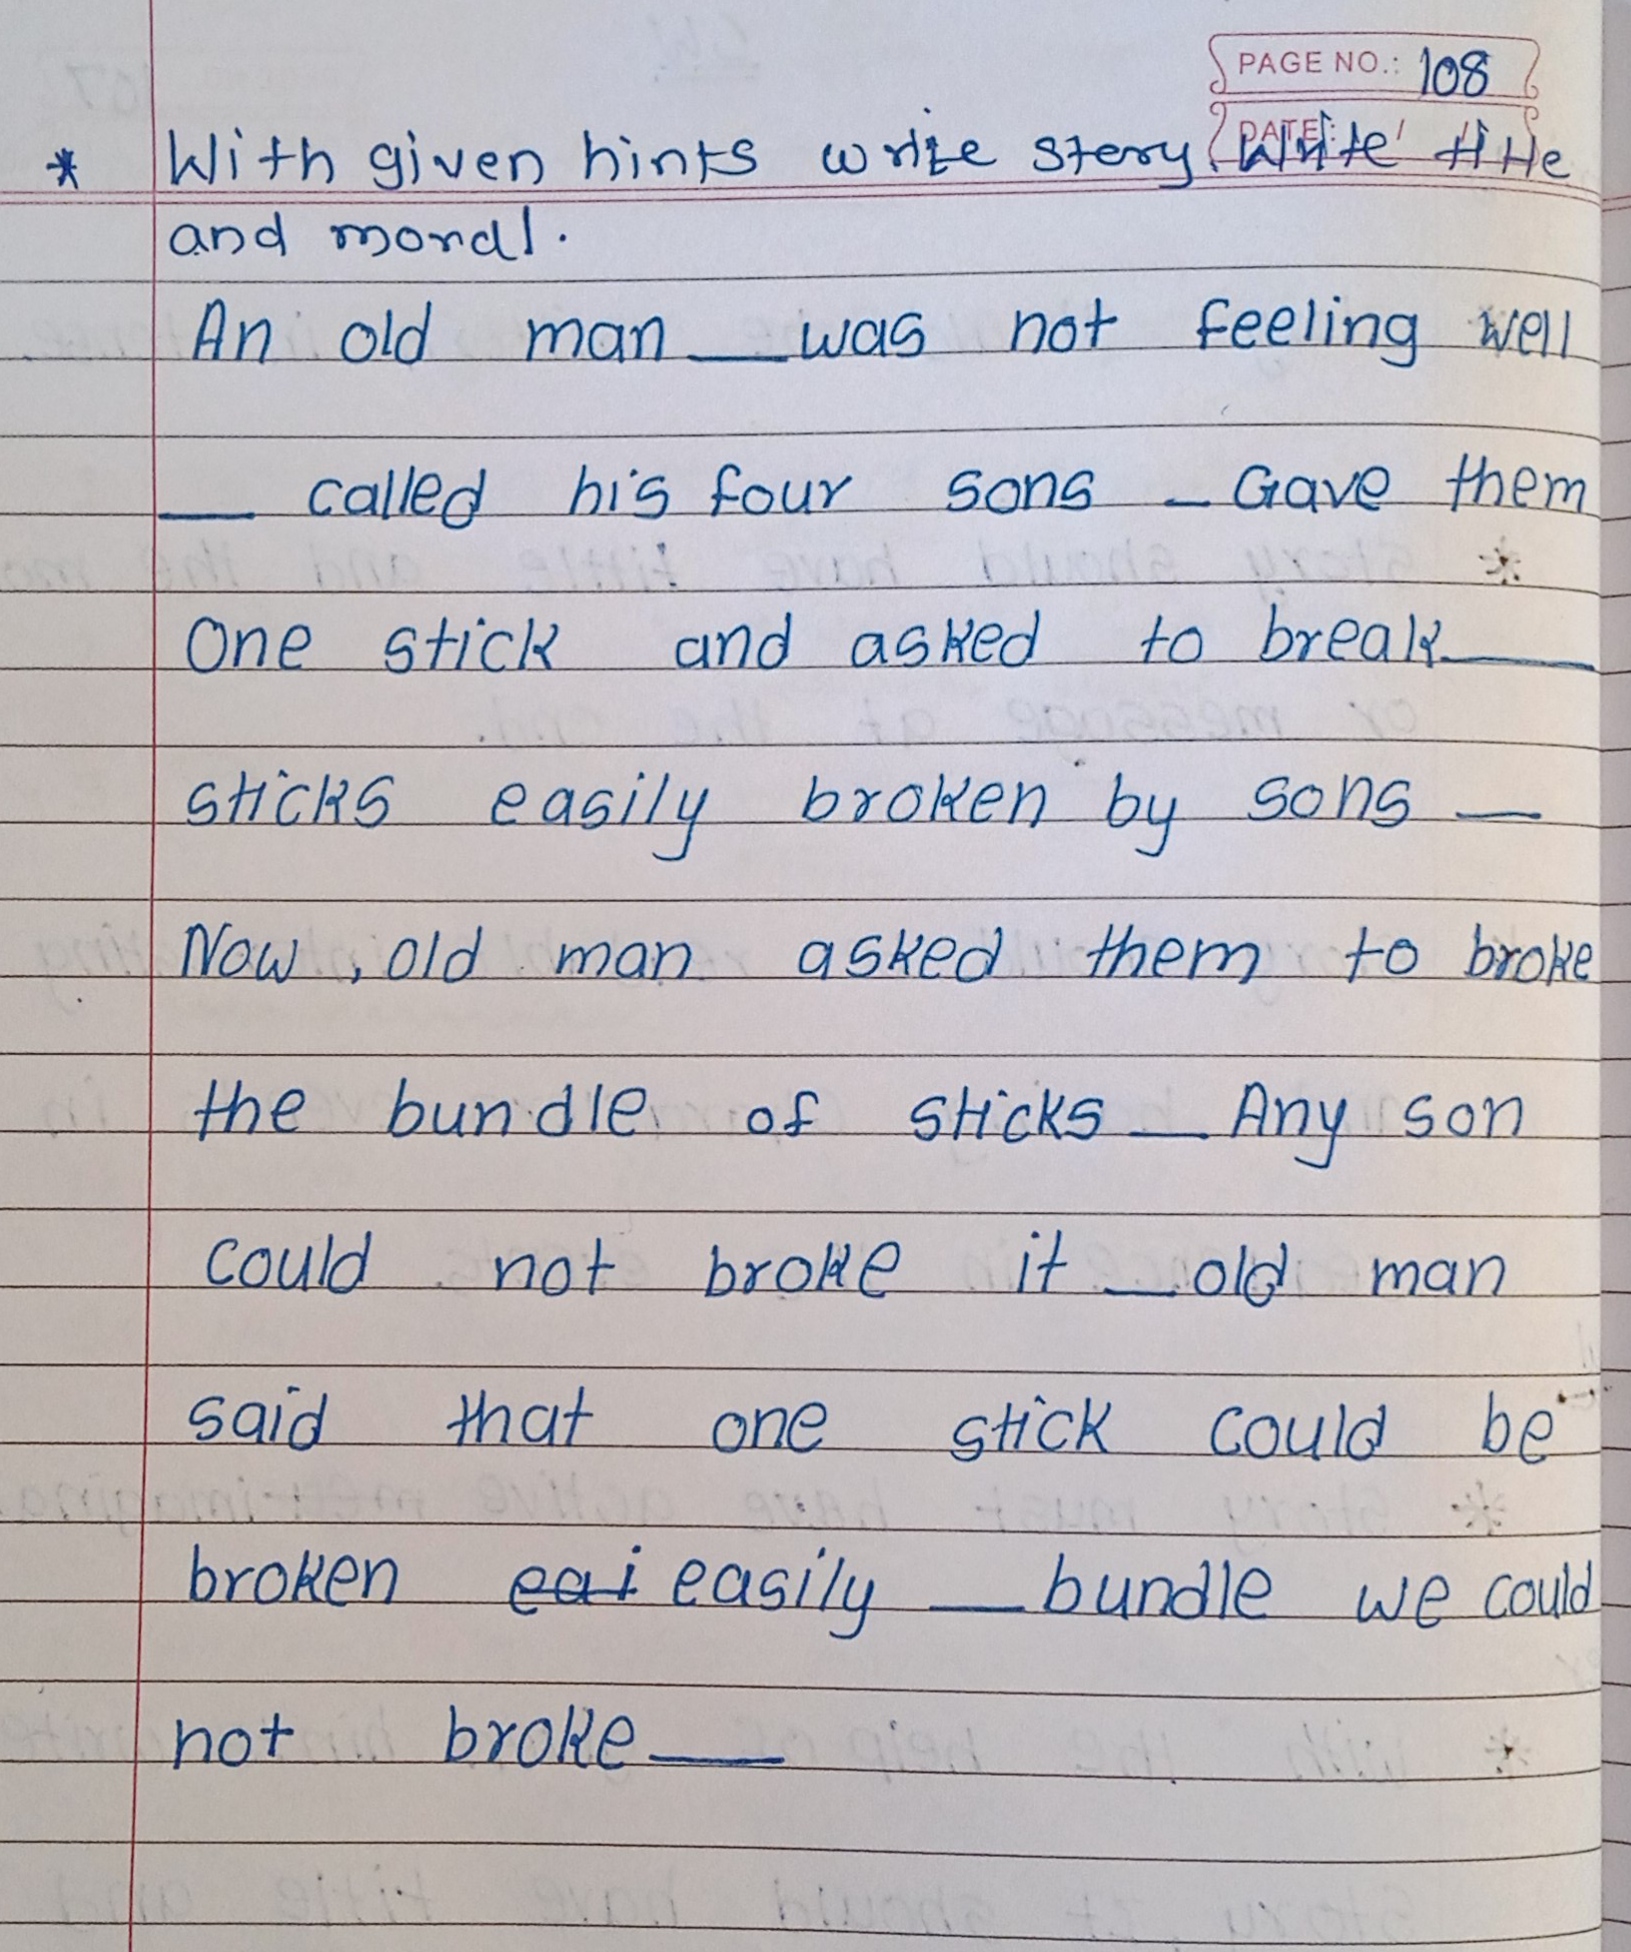 PAGE NO.: 108
DATE:
* With given hints write story. Write title
and moral.
An old man __ was not feeling well
__ called his four sons _ Gave them
One stick and asked to break __
sticks easily broken by sons __
Now, old man asked them to broke
the bundle of sticks __ Any son
could not broke it __ old man
said that one stick could be
broken eai easily __ bundle we could
not broke __